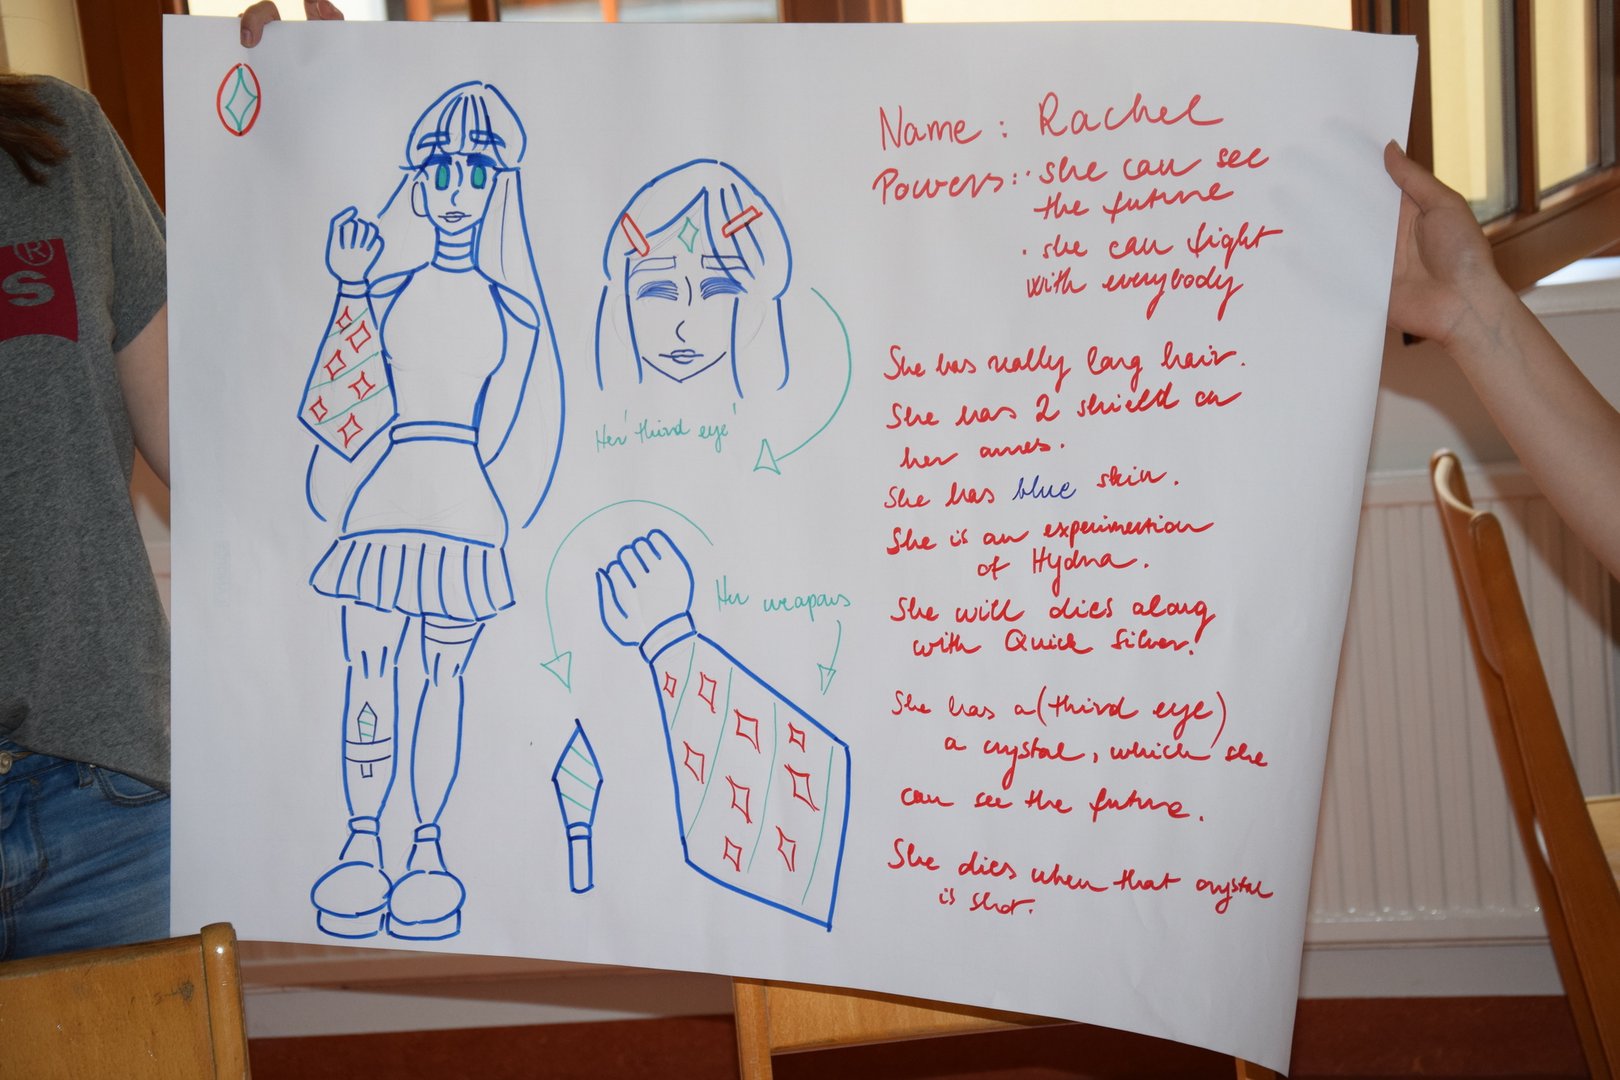 ® 
S
Name : Rachel
Powers: · she can see
the future
· she can fight
with everybody
She has really long hair.
She has 2 shield on
her armes.
She has blue skin.
She is an experimention
of Hydna.
She will dies along
with Quick Silver!
She has a (third eye)
a crystal, which she
can see the future.
She dies when that crystal
is shot.
Her 'third eye'
Her weapons